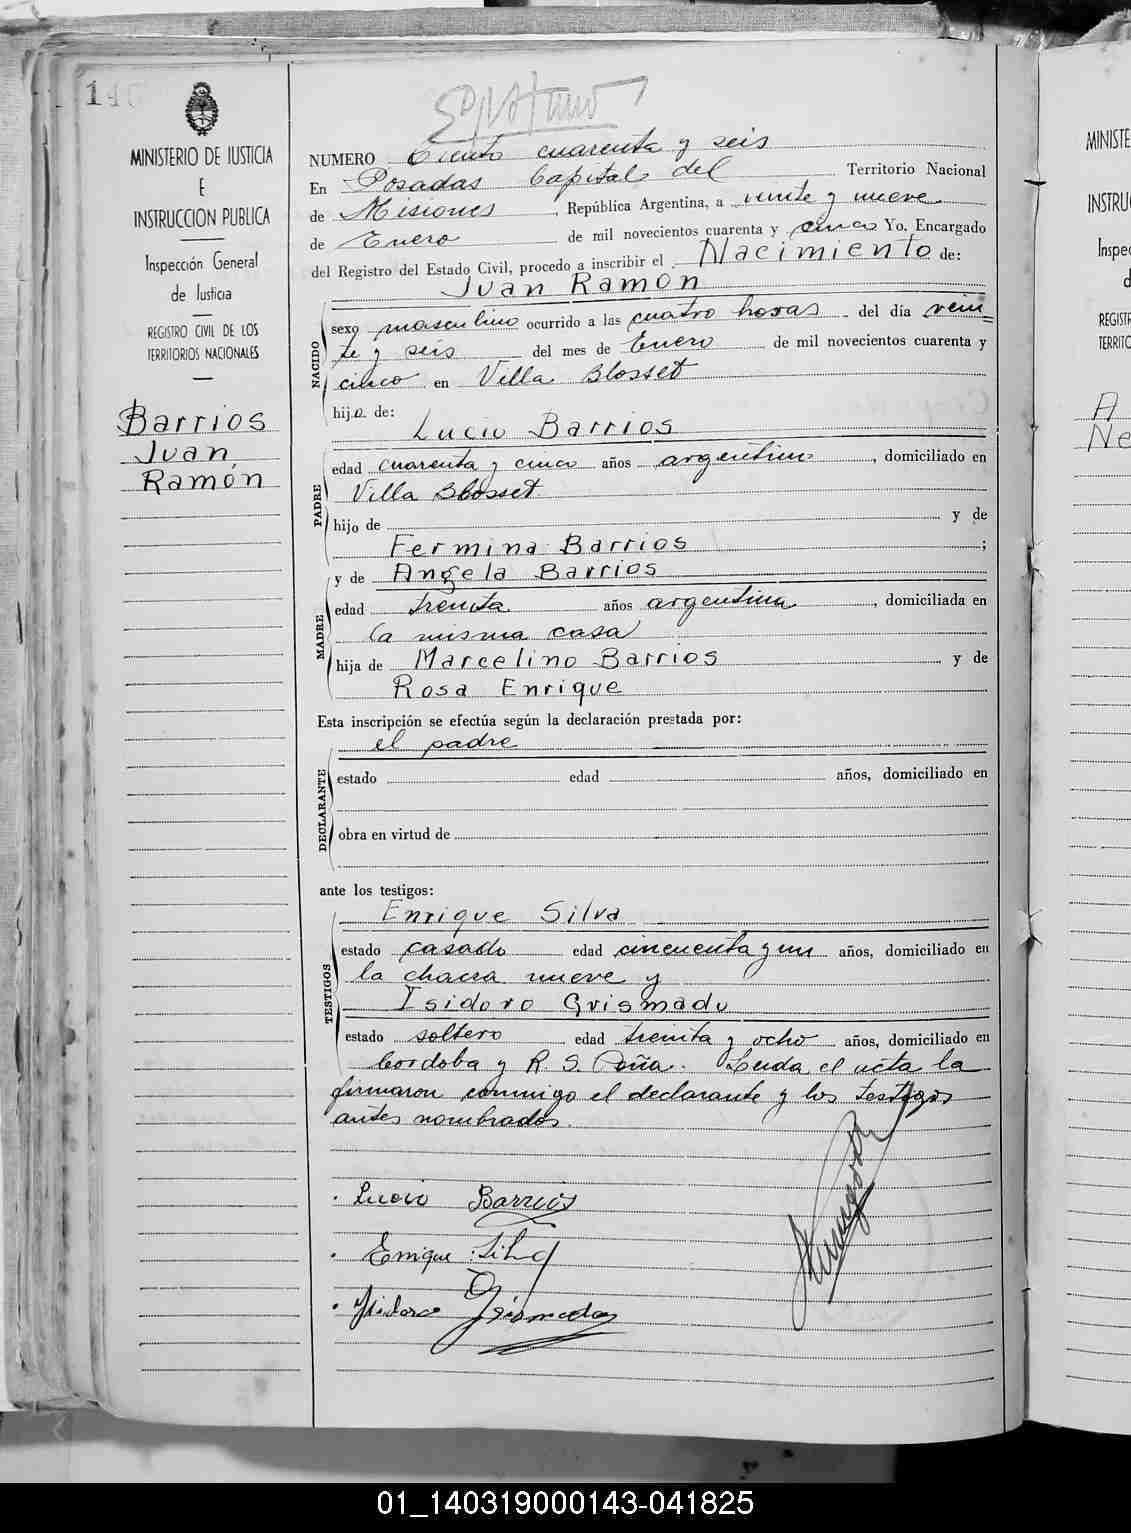 MINISTERIO DE JUSTICIA
E
INSTRUCCION PUBLICA
Inspección General
de Justicia
REGISTRO CIVIL DE LOS
TERRITORIOS NACIONALES
Barrios
Juan
Ramón
NUMERO Ciento cuarenta y seis
En Posadas Capital del Territorio Nacional
de Misiones República Argentina, a veinte y nueve
de Enero de mil novecientos cuarenta y cinco Yo, Encargado
del Registro del Estado Civil, procedo a inscribir el Nacimiento de:
Juan Ramón
NACIDO
sexo masculino ocurrido a las cuatro horas del día vein=
te y seis del mes de Enero de mil novecientos cuarenta y
cinco en Villa Blosset
hijo de:
Lucio Barrios
PADRE
edad cuarenta y cinco años argentino, domiciliado en
Villa Blosset
hijo de y de
Fermina Barrios ;
y de Angela Barrios
MADRE
edad treinta años argentina, domiciliada en
la misma casa
hija de Marcelino Barrios y de
Rosa Enrique
Esta inscripción se efectúa según la declaración prestada por:
el padre
DECLARANTE
estado edad años, domiciliado en
obra en virtud de
ante los testigos:
Enrique Silva
TESTIGOS
estado casado edad cincuenta y un años, domiciliado en
la chacra nueve y
Isidoro Grismado
estado soltero edad treinta y ocho años, domiciliado en
Cordoba y R. S. Peña. Leida el acta la
firmaron conmigo el declarante y los testigos
antes nombrados.
Lucio Barrios
Enrique Silva
Isidoro Grismado
MINISTE
INSTRU
Inspe
d
REGISTR
TERRITO
A
Ne
01_140319000143-041825